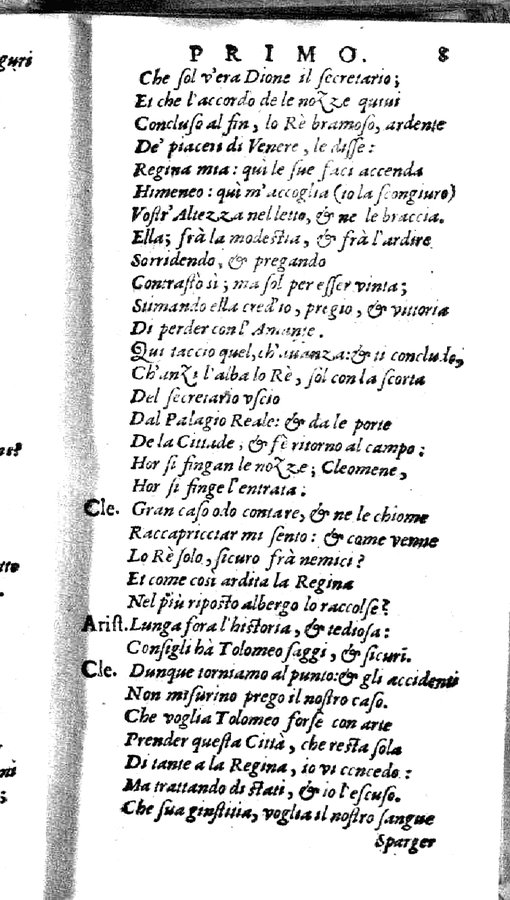 PRIMO. 8
guri
Che sol v'era Dione il secretario;
Et che l'accordo de le nozze quiui
Concluso al fin, lo Rè bramoso, ardente
De' piaceri di Venere, le disse:
Regina mia: quì le sue faci accenda
Himeneo: quì m'accoglia (io la scongiuro)
Vostr'Altezza nel letto, & ne le braccia.
Ella; frà la modestia, & frà l'ardire
Sorridendo, & pregando
Contrastò sì; ma sol per esser vinta;
Stimando ella cred'io, pregio, & vittoria
Di perder con l'Amante.
Qui taccio quel, ch'auanza: & ti conclude,
Ch'anzi l'alba lo Rè, sol con la scorta
Del secretario vscio
Dal Palagio Reale: & da le porte
De la Cittade, & fè ritorno al campo:
Hor si fingan le nozze; Cleomene,
Hor si finge l'entrata:
Cle. Gran caso odo contare, & ne le chiome
Raccapricciar mi sento: & come venne
Lo Rè solo, sicuro frà nemici?
Et come così ardita la Regina
Nel più riposto albergo lo raccolse?
Arist. Lunga fora l'historia, & tediosa:
Consigli hà Tolomeo saggi, & sicuri.
Cle. Dunque torniamo al punto: & gli accidenti
Non misurino prego il nostro caso.
Che voglia Tolomeo forse con arte
Prender questa Città, che resta sola
Di tante a la Regina, io vi concedo:
Ma trattando di stati, & io l'escuso.
Che sua giustitia, voglia il nostro sangue
Sparger